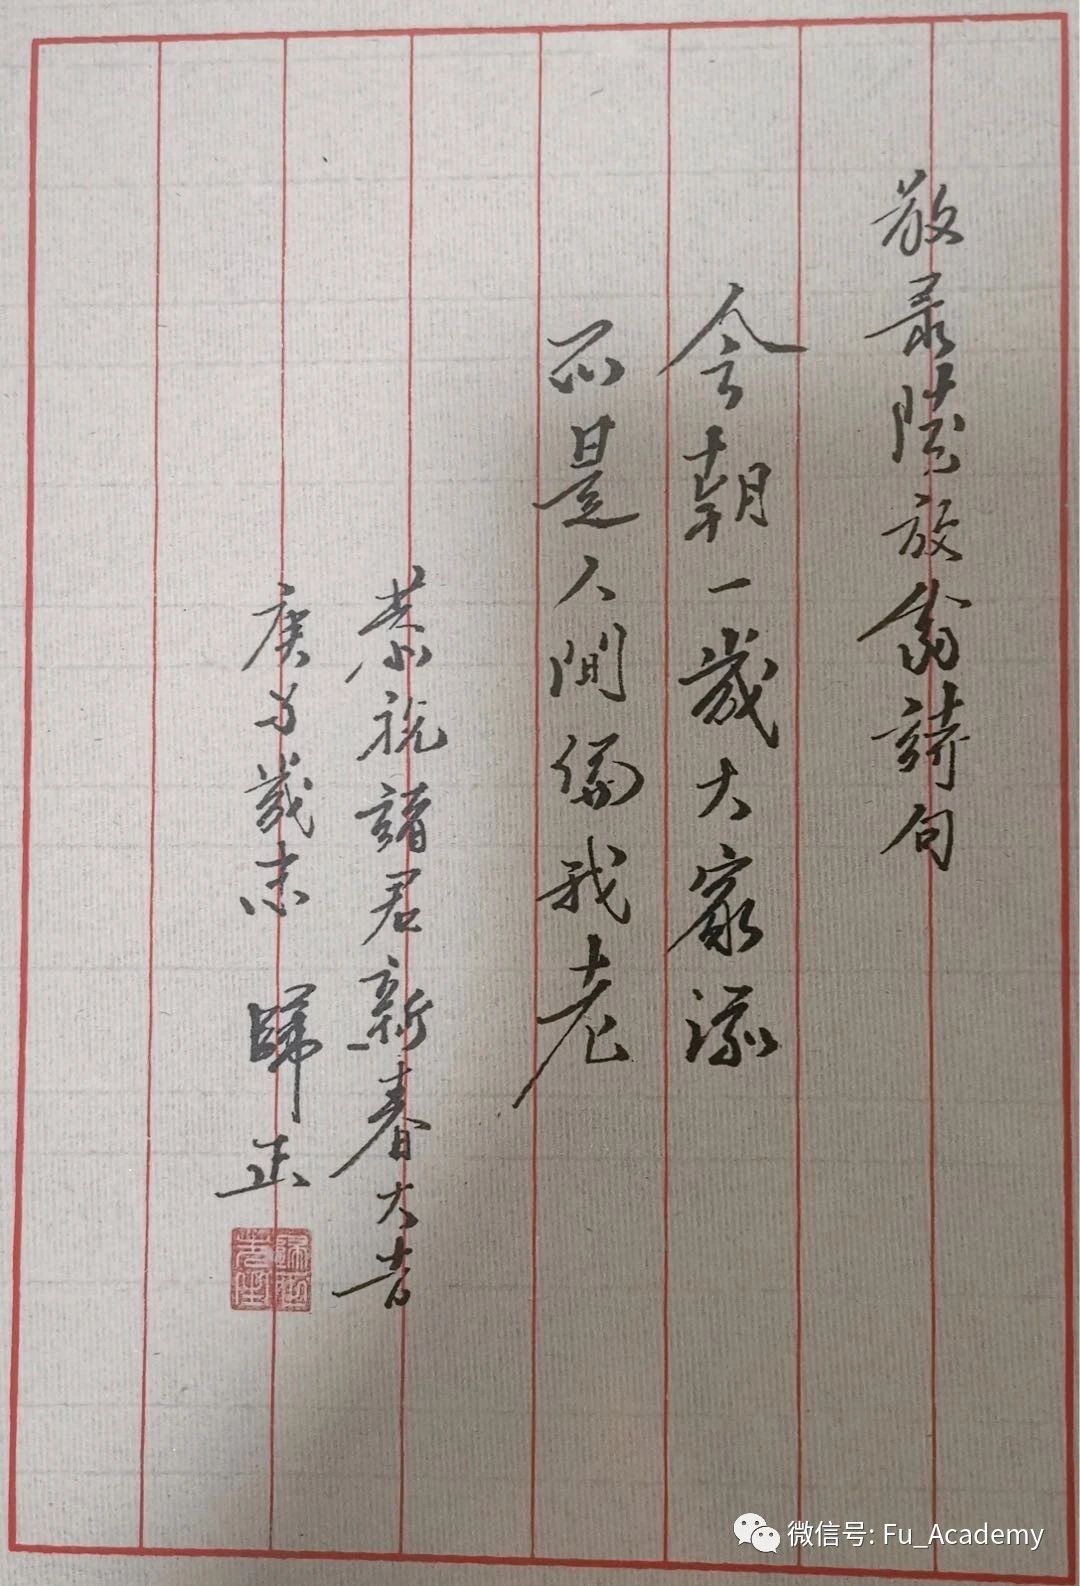 敬录陸放翁詩句
今朝一歲大家添
不是人間偏我老
恭祝諸君新春大吉
庚子歲末 歸正
微信号: Fu_Academy